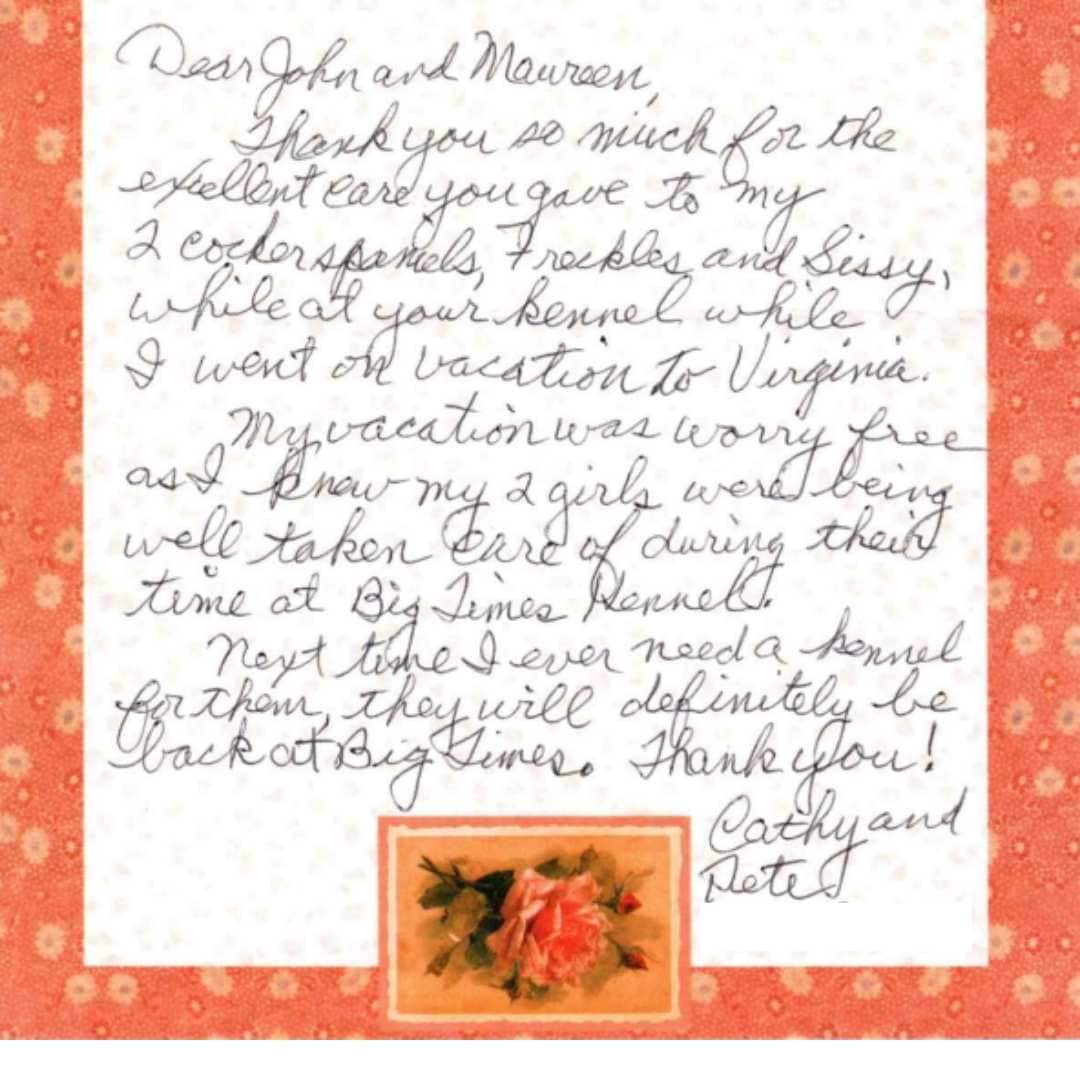 Dear John and Maureen,
Thank you so much for the
excellent care you gave to my
2 cocker spaniels, Freckles and Sissy,
while at your kennel while
I went on vacation to Virginia.
My vacation was worry free
as I knew my 2 girls were being
well taken care of during their
time at Big Times Kennel.
Next time I ever need a kennel
for them, they will definitely be
back at Big Times. Thank you!
Cathy and
Pete